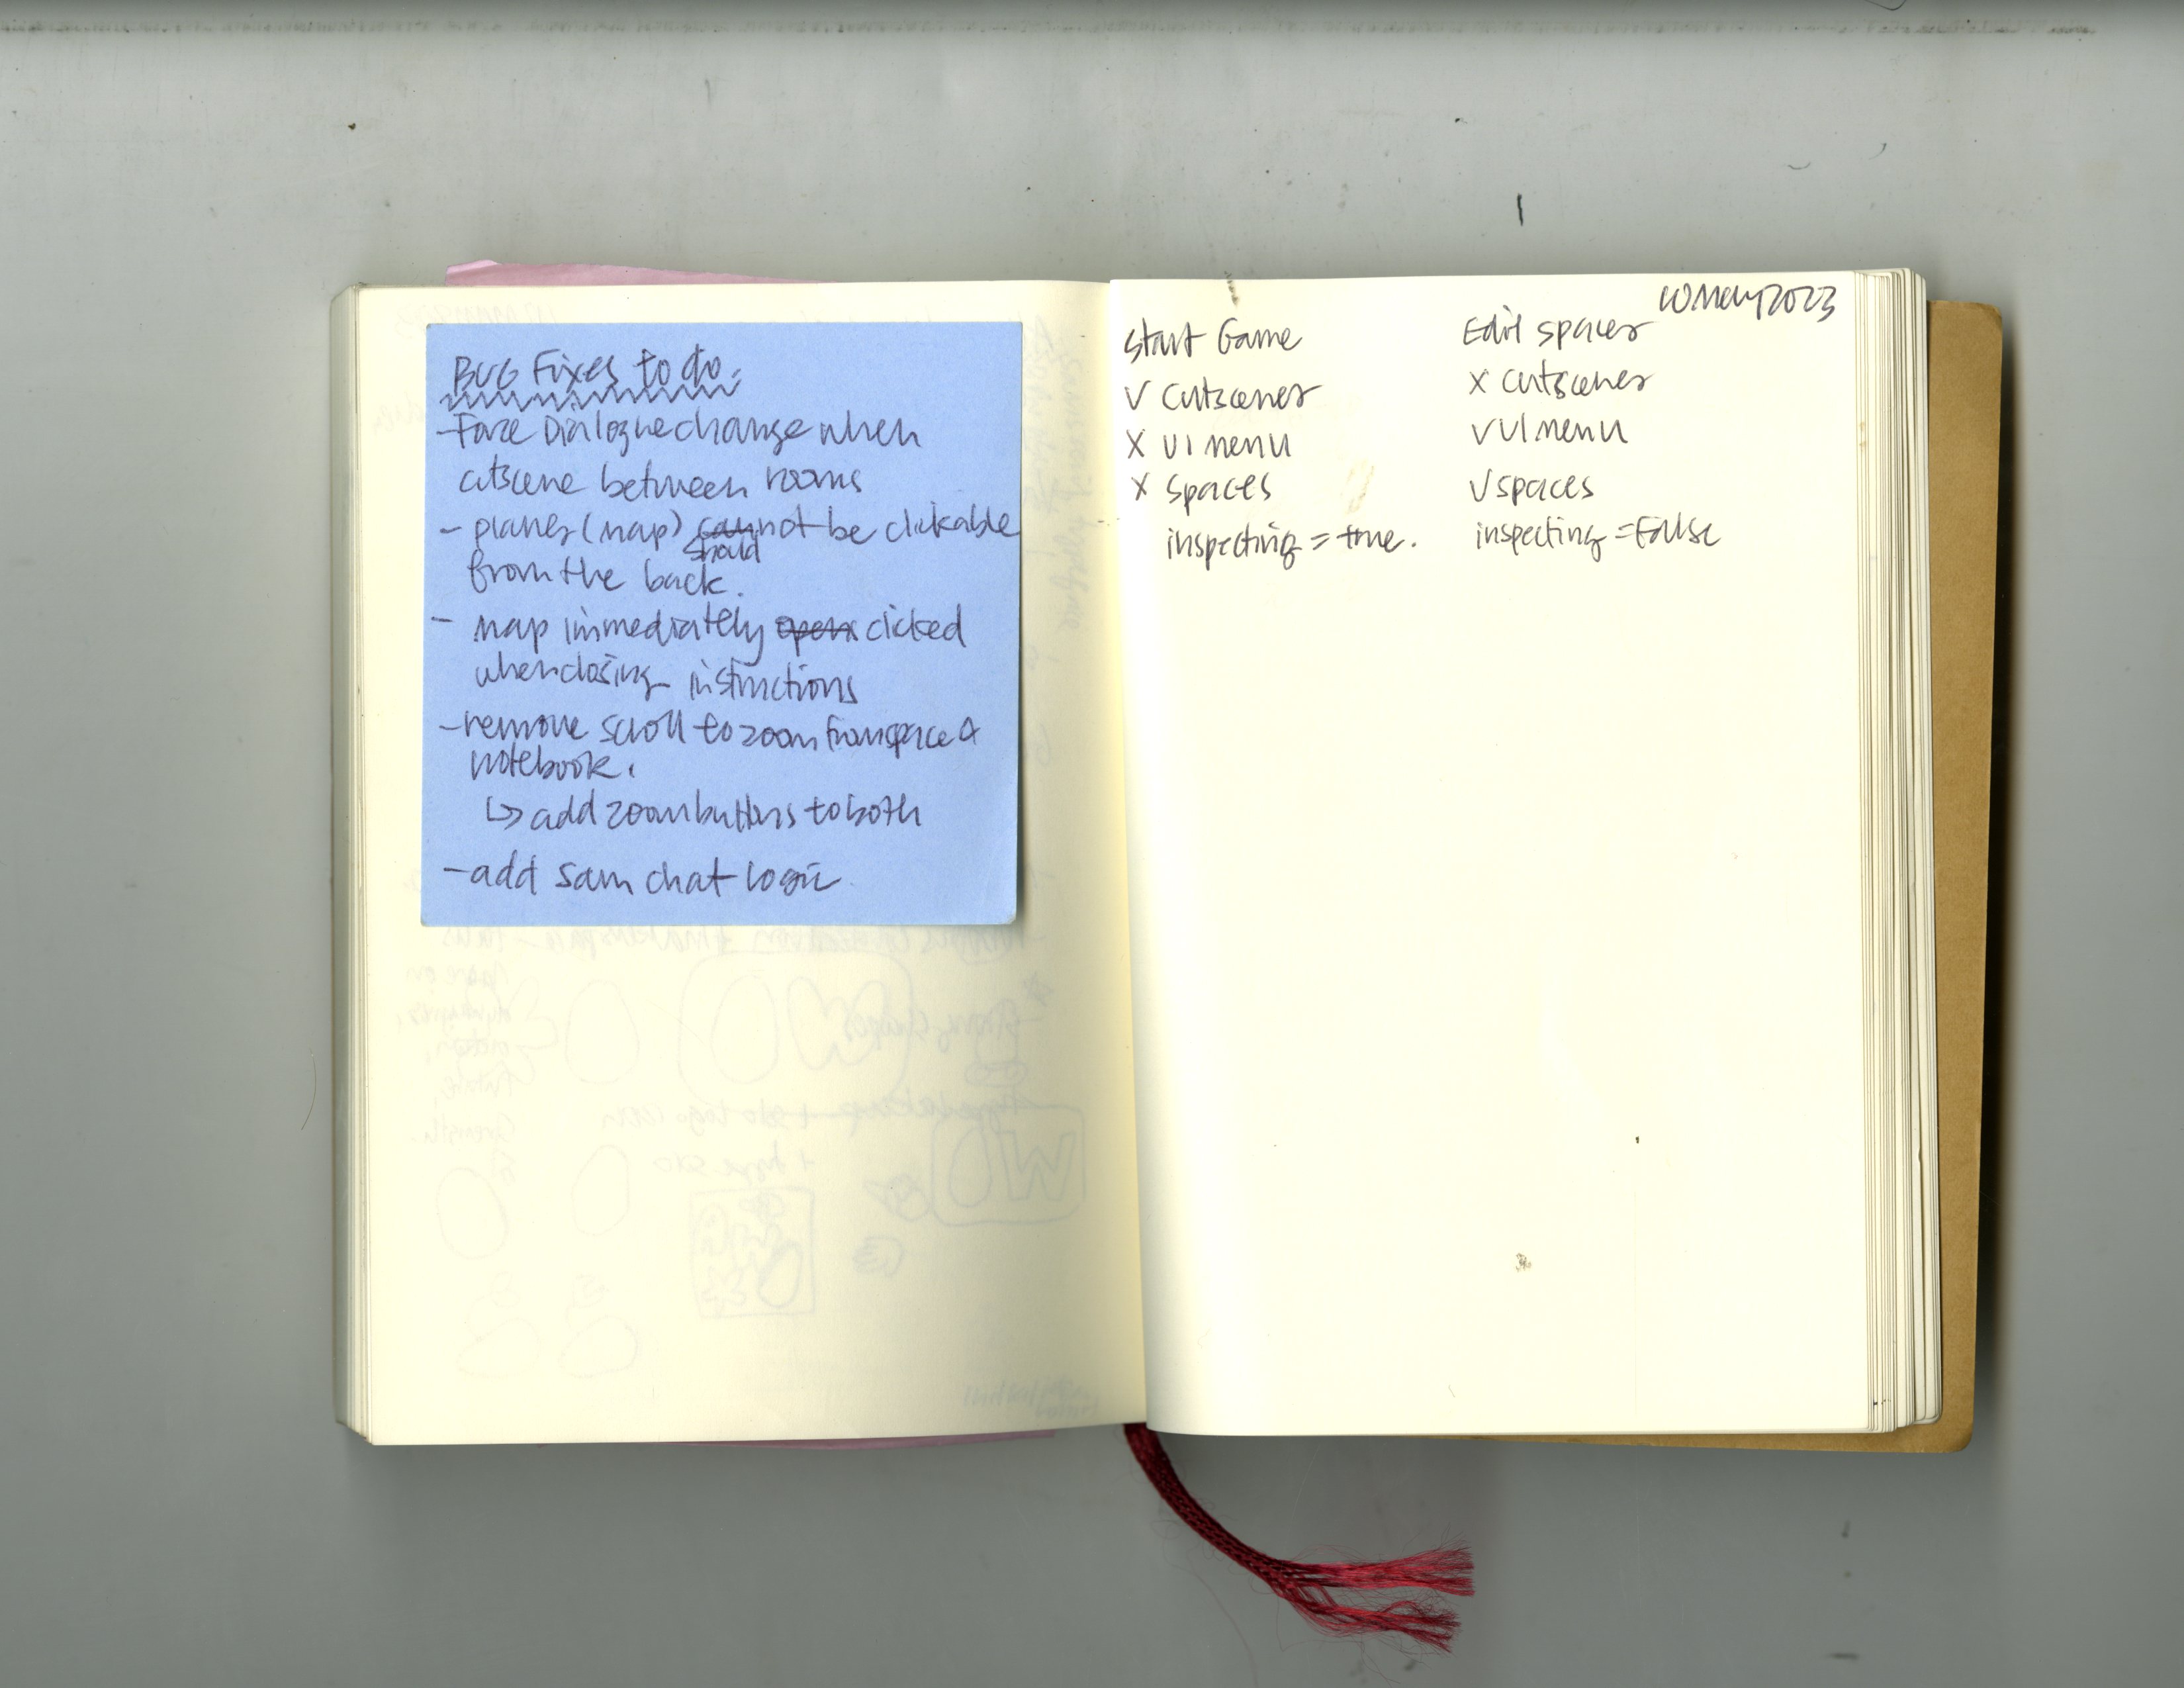 BUG Fixes to do.
- Face Dialogue change when
cutscene between rooms
- planes (map) can not be clickable
should
from the back.
- map immediately open clicked
when closing instructions
- remove scroll to zoom from space &
notebook.
↳ add zoom buttons to both
- add sam chat logic
10 May 2023
Start Game
V cutscenes
X UI menu
X spaces
inspecting = true.
Edit spaces
X cutscenes
V UI menu
V spaces
inspecting = False